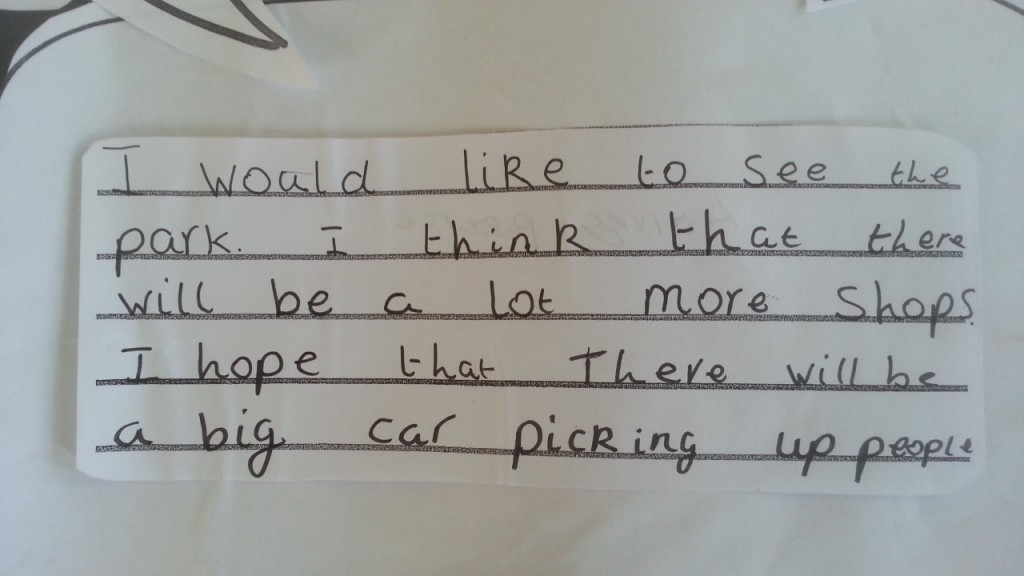 I would like to see the
park. I think that there
will be a lot more Shops.
I hope that There will be
a big car picking up people